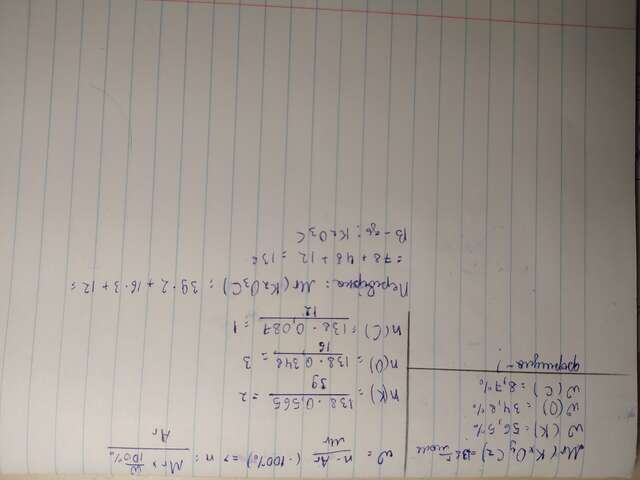 Mr(KxOyCz) = 138 г/моль
ω(K) = 56,5%
ω(O) = 34,8%
ω(C) = 8,7%
формула - ?
ω = n·Ar / Mr (·100%) => n = Mr × ω/100% / Ar
n(K) = 138·0,565 / 39 = 2
n(O) = 138·0,348 / 16 = 3
n(C) = 138·0,087 / 12 = 1
Перевірка: Mr(K2O3C) = 39·2 + 16·3 + 12 =
= 78 + 48 + 12 = 138
В-дь: K2O3C